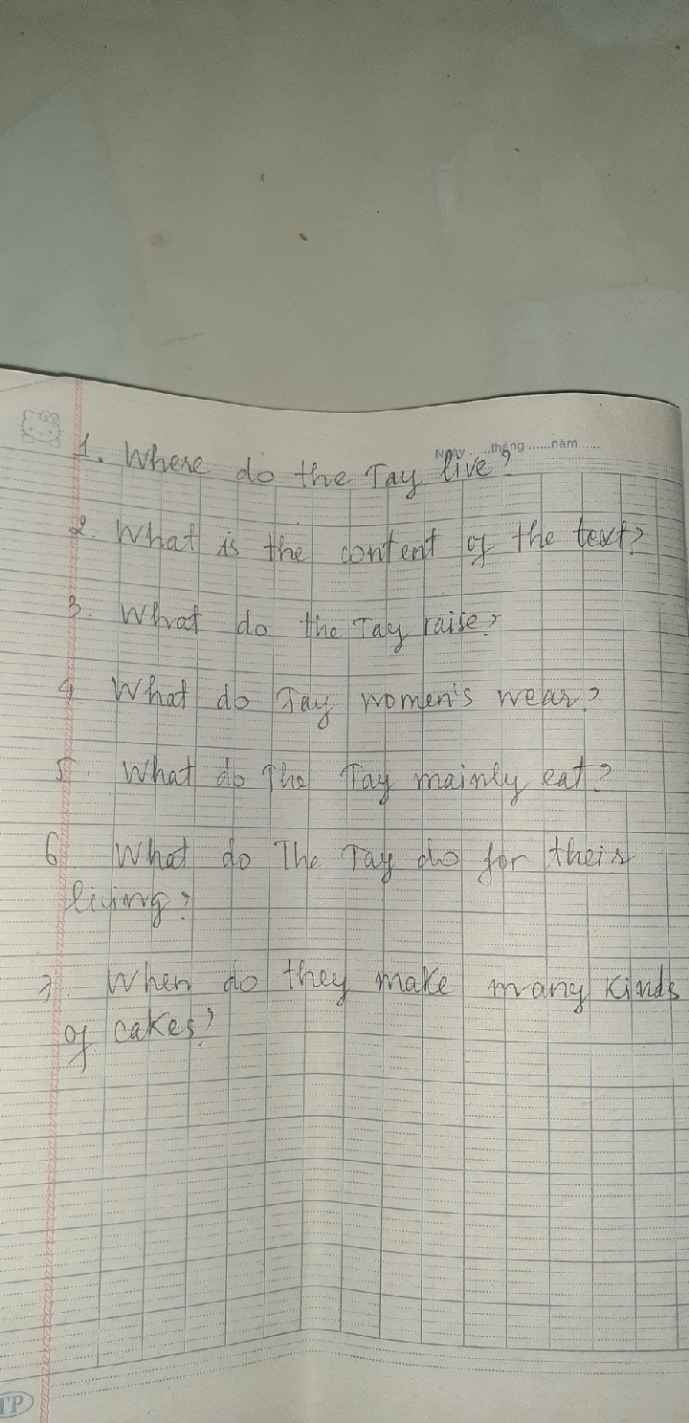 Ngày.....tháng......năm.....
1. Where do the Tay live?
2. What is the content of the text?
3. What do the Tay raise?
4 What do Tay women's wear?
5 What do The Tay mainly eat?
6 What do The Tay do for their
living?
7 When do they make many kinds
of cakes?
TP